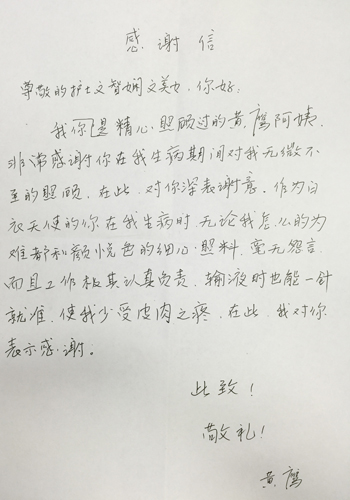 感谢信
尊敬的护士文智娴文美女,你好:
我你是精心照顾过的黄鹰阿姨,
非常感谢你在我生病期间对我无微不
至的照顾,在此,对你深表谢意。作为白
衣天使的你在我生病时,无论我怎么的为
难都和颜悦色的细心照料,毫无怨言,
而且工作极其认真负责,输液时也能一针
就准,使我少受皮肉之疼,在此,我对你
表示感谢。
此致!
敬礼!
黄鹰